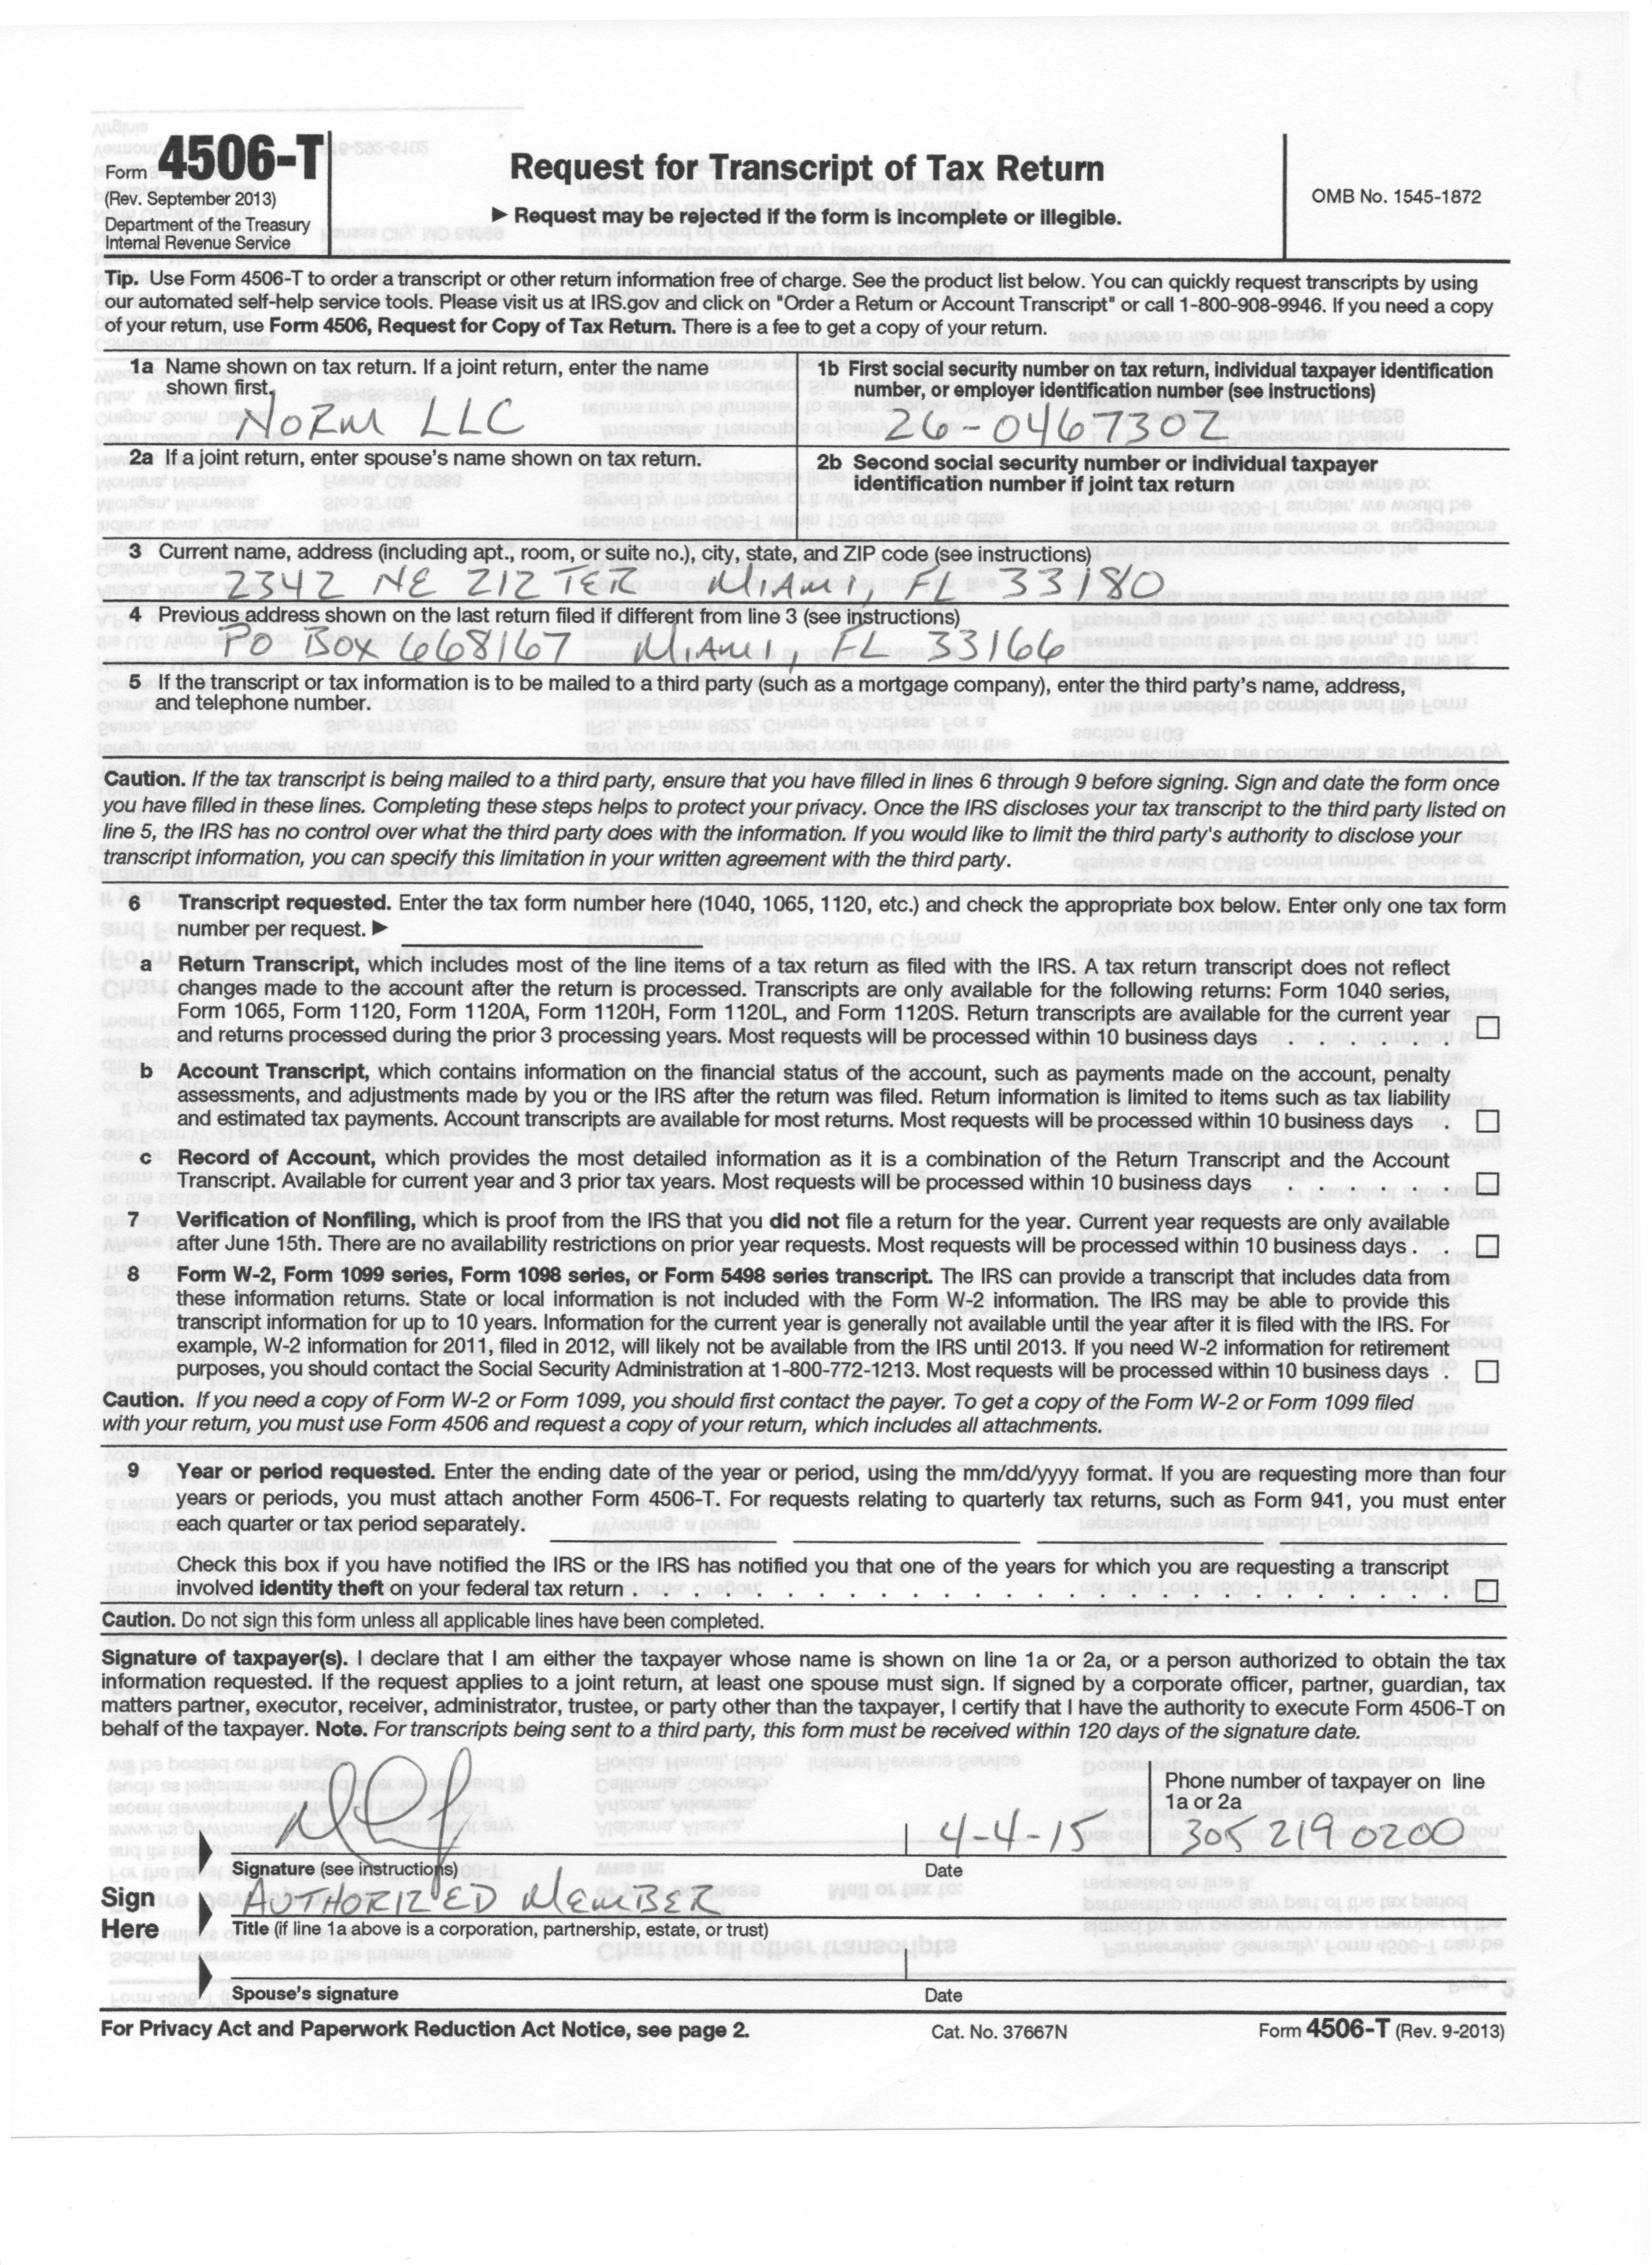 Form 4506-T
(Rev. September 2013)
Department of the Treasury
Internal Revenue Service
Request for Transcript of Tax Return
▶ Request may be rejected if the form is incomplete or illegible.
OMB No. 1545-1872
Tip. Use Form 4506-T to order a transcript or other return information free of charge. See the product list below. You can quickly request transcripts by using
our automated self-help service tools. Please visit us at IRS.gov and click on "Order a Return or Account Transcript" or call 1-800-908-9946. If you need a copy
of your return, use Form 4506, Request for Copy of Tax Return. There is a fee to get a copy of your return.
1a Name shown on tax return. If a joint return, enter the name
shown first.
NORM LLC
1b First social security number on tax return, individual taxpayer identification
number, or employer identification number (see instructions)
26-0467302
2a If a joint return, enter spouse's name shown on tax return.
2b Second social security number or individual taxpayer
identification number if joint tax return
3 Current name, address (including apt., room, or suite no.), city, state, and ZIP code (see instructions)
2342 NE 212 TER MIAMI, FL 33180
4 Previous address shown on the last return filed if different from line 3 (see instructions)
PO BOX 668167 MIAMI, FL 33166
5 If the transcript or tax information is to be mailed to a third party (such as a mortgage company), enter the third party's name, address,
and telephone number.
Caution. If the tax transcript is being mailed to a third party, ensure that you have filled in lines 6 through 9 before signing. Sign and date the form once
you have filled in these lines. Completing these steps helps to protect your privacy. Once the IRS discloses your tax transcript to the third party listed on
line 5, the IRS has no control over what the third party does with the information. If you would like to limit the third party's authority to disclose your
transcript information, you can specify this limitation in your written agreement with the third party.
6 Transcript requested. Enter the tax form number here (1040, 1065, 1120, etc.) and check the appropriate box below. Enter only one tax form
number per request. ▶
a Return Transcript, which includes most of the line items of a tax return as filed with the IRS. A tax return transcript does not reflect
changes made to the account after the return is processed. Transcripts are only available for the following returns: Form 1040 series,
Form 1065, Form 1120, Form 1120A, Form 1120H, Form 1120L, and Form 1120S. Return transcripts are available for the current year
and returns processed during the prior 3 processing years. Most requests will be processed within 10 business days . . . . . . .
b Account Transcript, which contains information on the financial status of the account, such as payments made on the account, penalty
assessments, and adjustments made by you or the IRS after the return was filed. Return information is limited to items such as tax liability
and estimated tax payments. Account transcripts are available for most returns. Most requests will be processed within 10 business days .
c Record of Account, which provides the most detailed information as it is a combination of the Return Transcript and the Account
Transcript. Available for current year and 3 prior tax years. Most requests will be processed within 10 business days . . . . . .
7 Verification of Nonfiling, which is proof from the IRS that you did not file a return for the year. Current year requests are only available
after June 15th. There are no availability restrictions on prior year requests. Most requests will be processed within 10 business days . .
8 Form W-2, Form 1099 series, Form 1098 series, or Form 5498 series transcript. The IRS can provide a transcript that includes data from
these information returns. State or local information is not included with the Form W-2 information. The IRS may be able to provide this
transcript information for up to 10 years. Information for the current year is generally not available until the year after it is filed with the IRS. For
example, W-2 information for 2011, filed in 2012, will likely not be available from the IRS until 2013. If you need W-2 information for retirement
purposes, you should contact the Social Security Administration at 1-800-772-1213. Most requests will be processed within 10 business days .
Caution. If you need a copy of Form W-2 or Form 1099, you should first contact the payer. To get a copy of the Form W-2 or Form 1099 filed
with your return, you must use Form 4506 and request a copy of your return, which includes all attachments.
9 Year or period requested. Enter the ending date of the year or period, using the mm/dd/yyyy format. If you are requesting more than four
years or periods, you must attach another Form 4506-T. For requests relating to quarterly tax returns, such as Form 941, you must enter
each quarter or tax period separately.
Check this box if you have notified the IRS or the IRS has notified you that one of the years for which you are requesting a transcript
involved identity theft on your federal tax return . . . . . . . . . . . . . . . . . . . . . . . . . . .
Caution. Do not sign this form unless all applicable lines have been completed.
Signature of taxpayer(s). I declare that I am either the taxpayer whose name is shown on line 1a or 2a, or a person authorized to obtain the tax
information requested. If the request applies to a joint return, at least one spouse must sign. If signed by a corporate officer, partner, guardian, tax
matters partner, executor, receiver, administrator, trustee, or party other than the taxpayer, I certify that I have the authority to execute Form 4506-T on
behalf of the taxpayer. Note. For transcripts being sent to a third party, this form must be received within 120 days of the signature date.
Phone number of taxpayer on line
1a or 2a
4-4-15
305 219 0200
Signature (see instructions)
Date
Sign
Here
AUTHORIZED MEMBER
Title (if line 1a above is a corporation, partnership, estate, or trust)
Spouse's signature
Date
For Privacy Act and Paperwork Reduction Act Notice, see page 2.
Cat. No. 37667N
Form 4506-T (Rev. 9-2013)